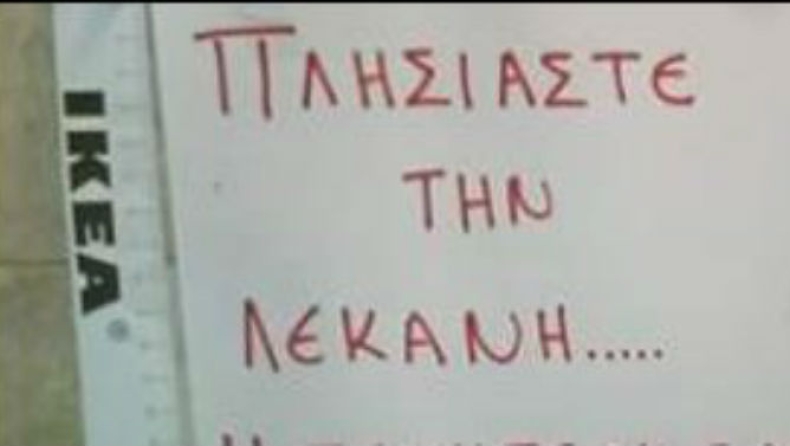 ΠΛΗΣΙΑΣΤΕ
ΤΗΝ
ΛΕΚΑΝΗ.....
IKEA®